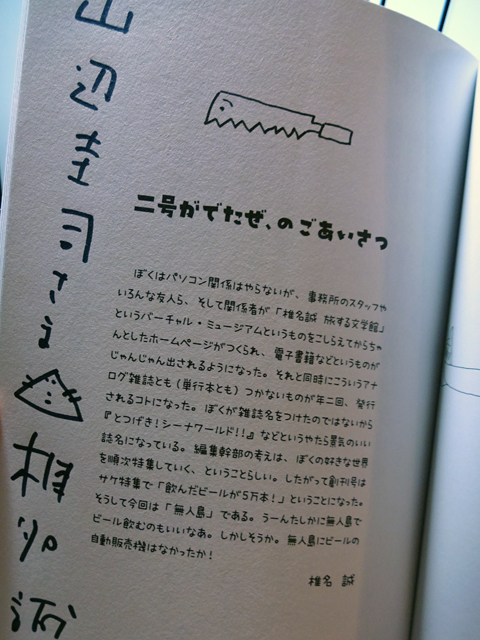 山辺圭司さま
椎名誠
二号がでたぜ、のごあいさつ
ぼくはパソコン関係はやらないが、事務所のスタッフや
いろんな友人ら、そして関係者が「椎名誠 旅する文学館」
というバーチャル・ミュージアムというものをこしらえてからちゃ
んとしたホームページがつくられ、電子書籍などというものが
じゃんじゃん出されるようになった。それと同時にこういうアナ
ログ雑誌とも(単行本とも)つかないものが年二回、発行
されるコトになった。ぼくが雑誌名をつけたのではないから
『とつげき!シーナワールド!!』などというやたら景気のいい
誌名になっている。編集幹部の考えは、ぼくの好きな世界
を順次特集していく、ということらしい。したがって創刊号は
サケ特集で「飲んだビールが5万本!」ということになった。
そうして今回は「無人島」である。うーんたしかに無人島で
ビール飲むのもいいなあ。しかしそうか。無人島にビールの
自動販売機はなかったか!
椎名 誠